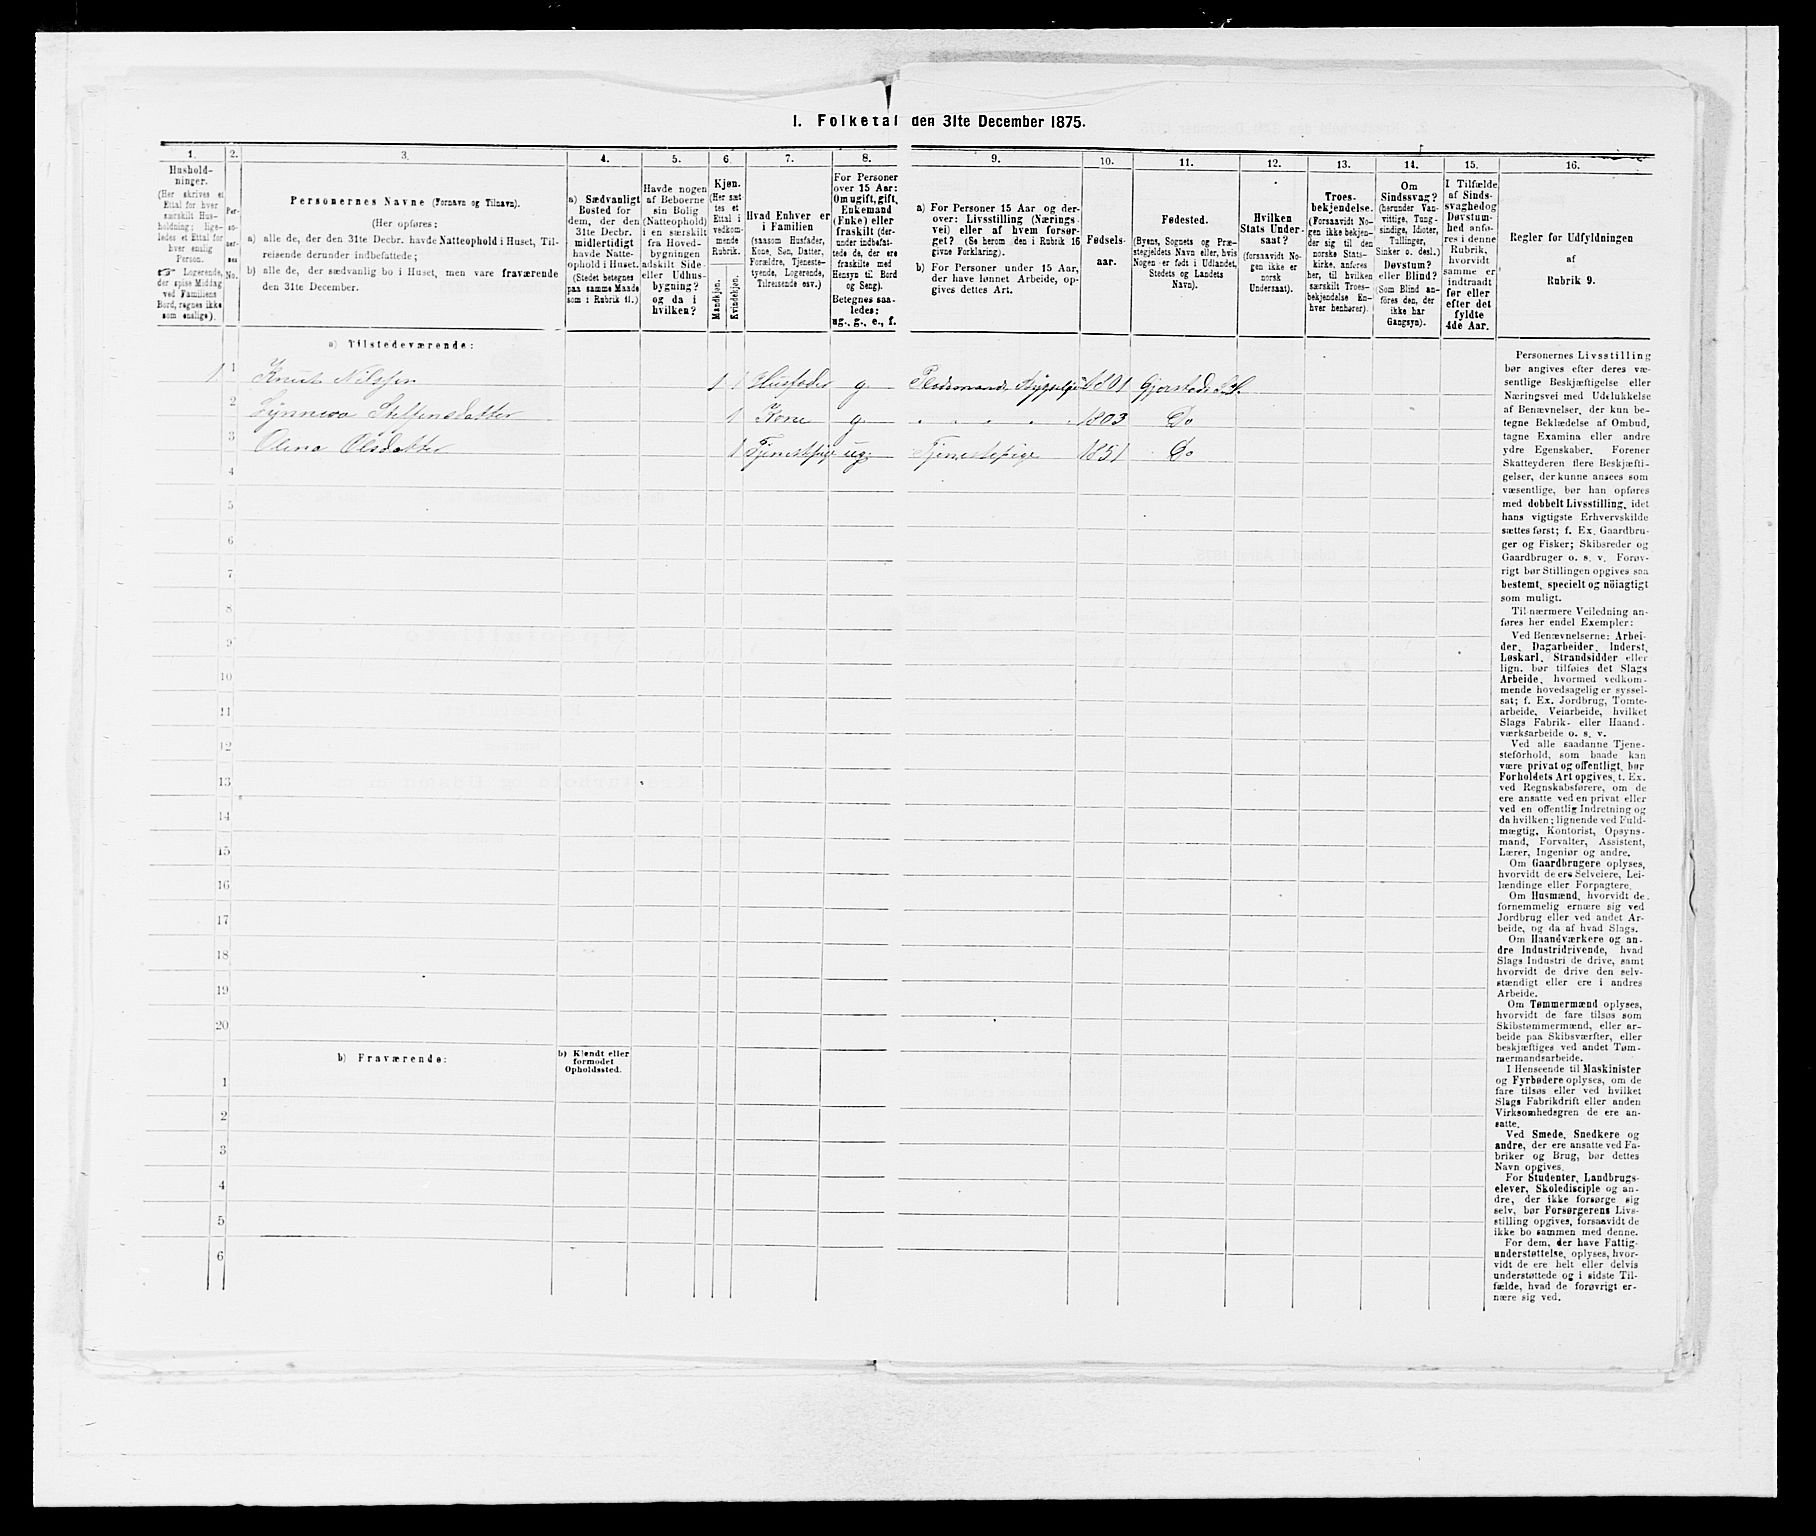 1. Folketal den 31te December 1875.
1. 2. 3. 4. 5. 6. 7. 8. 9. 10. 11. 12. 13. 14. 15. 16.
Hushold-
ninger.
(Her skrives et
Ettal for hver
særskilt Hus-
holdning; lige-
ledes et Ettal for
hver enslig
Person.
☞ Logerende,
der spise Middag
ved Familiens
Bord, regnes ikke
som enslige).
Per-
so-
ner-
nes
No.
Personernes Navne (Fornavn og Tilnavn).
(Her opføres:
a) alle de, der den 31te Decbr. havde Natteophold i Huset, Til-
reisende derunder indbefattede;
b) alle de, der sædvanlig bo i Huset, men vare fraværende
den 31te December.
a) Sædvanligt
Bosted for
dem, der den
31te Decbr.
midlertidigt
havde Natte-
ophold i Huset.
(Stedet betegnes
paa samme Maade
som i Rubrik 11.)
Havde nogen
af Beboerne
sin Bolig
(Natteophold)
i en særskilt
fra Hoved-
bygningen
adskilt Side-
eller Udhus-
bygning?
og da i
hvilken?
Kjøn.
(Her sæt-
tes et
Ettal i
vedkom-
mende
Rubrik.
Mandkjøn.
Kvindekjøn.
Hvad Enhver er
i Familien
(saasom Husfader,
Kone, Søn, Datter,
Forældre, Tjeneste-
tyende, Logerende,
Tilreisende osv.)
For Personer
over 15 Aar:
Om ugift, gift,
Enkemand
(Enke) eller
fraskilt (der-
under indbefat-
tede de, der ere
fraskilte med
Hensyn til Bord
og Seng).
Betegnes saa-
ledes:
ug., g., e., f.
a) For Personer 15 Aar og der-
over: Livsstilling (Nærings-
vei) eller af hvem forsør-
get? (Se herom den i Rubrik 16
givne Forklaring).
b) For Personer under 15 Aar,
der have lønnet Arbeide, op-
gives dettes Art.
Fødsels-
aar.
Fødested.
(Byens, Sognets og Præ-
stegjeldets Navn eller, hvis
Nogen er født i Udlandet,
Stedets og Landets
Navn).
Hvilken
Stats Under-
saat?
(forsaavidt No-
gen ikke er
norsk
Undersaat).
Troes-
bekjendelse.
(Forsaavidt No-
gen ikke bekjen-
der sig til den
norske Stats-
kirke, anføres
her, til hvilken
særskilt Troes-
bekjendelse En-
hver henhører).
Om
Sindssvag?
(herunder Van-
vittige, Tung-
sindige, Idioter,
Tullinger,
Sinker o. desl.)
Døvstum?
eller Blind?
(Som Blind an-
føres den, der
ikke har
Gangsyn).
I Tilfælde
af Sinds-
svaghed og
Døvstum-
hed anfø-
res i denne
Rubrik,
hvorvidt
samme er
indtraadt
før eller
efter det
fyldte
4de Aar.
Regler for Udfyldningen
af
Rubrik 9.
a) Tilstedeværende:
1 1 Knut Nilssen 1 1 Husfader g. 1801
2 Synneva Steffensdatter 1 Kone g. " " " " " 1803 Do
3 Olina Olsdatter 1 Tjenestepige ug. Tjenestepige 1851 Do
4
5
6
7
8
9
10
11
12
13
14
15
16
17
18
19
20
b) Fraværende:
b) Kjendt eller
formodet
Opholdssted.
1
2
3
4
5
6
Personernes Livsstilling
bør angives efter deres væ-
sentlige Beskjæftigelse eller
Næringsvei med Udelukkelse
af Benævnelser, der kun be-
tegne Beklædelse af Ombud,
tagne Examina eller andre
ydre Egenskaber. Forener
Skatteyderen flere Beskjæfti-
gelser, der kunne ansees som
væsentlige, bør han opføres
med dobbelt Livsstilling, idet
hans vigtigste Erhvervskilde
sættes først; f. Ex. Gaardbru-
ger og Fisker; Skibsreder og
Gaardbruger o. s. v. Forøv-
rigt bør Stillingen opgives saa
bestemt, specielt og nöiagtigt
som muligt.
Til nærmere Veiledning an-
føres her endel Exempler:
Ved Benævnelserne: Arbei-
der, Dagarbeider, Inderst,
Løskarl, Strandsidder eller
lign. bør tilføies det Slags
Arbeide, hvormed vedkom-
mende hovedsagelig er syssel-
sat; f. Ex. Jordbrug, Tomte-
arbeide, Veiarbeide, hvilket
Slags Fabrik- eller Haand-
værksarbeide o. s. v.
Ved alle saadanne Tjene-
steforhold, som baade kan
være privat og offentligt, bør
Forholdets Art opgives, t. Ex.
ved Regnskabsførere, om de
ere ansatte ved en privat eller
ved en offentlig Indretning og
da hvilken; lignende ved Fuld-
mægtig, Kontorist, Opsyns-
mand, Forvalter, Assistent,
Lærer, Ingeniør og andre.
Om Gaardbrugere oplyses,
hvorvidt de ere Selveiere, Lei-
lændinge eller Forpagtere.
Om Husmænd, hvorvidt de
fornemmelig ernære sig ved
Jordbrug eller ved andet Ar-
beide, og da af hvad Slags.
Om Haandværkere og an-
dre Industridrivende, hvad
Slags Industri de drive, samt
hvorvidt de drive den selv-
stændigt eller ere i andres
Arbeide.
Om Tømmermænd oplyses,
hvorvidt de fare tilsøs som
Skibstømmermænd, eller ar-
beide paa Skibsværfter, eller
beskjæftiges ved andet Tøm-
mermandsarbeide.
I Henseende til Maskinister
og Fyrbødere oplyses, om de
fare tilsøs eller ved hvilket
Slags Fabrikdrift eller anden
Virksomhedsgren de ere an-
satte.
Ved Smede, Snedkere og
andre, der ere ansatte ved Fa-
briker og Brug, bør dettes
Navn opgives.
For Studenter, Landbrugs-
elever, Skoledisciple og an-
dre, der ikke forsørge sig
selv, bør Forsørgerens Livs-
stilling opgives, forsaavidt de
ikke bo sammen med denne.
For dem, der have Fattig-
understøttelse, oplyses, hvor-
vidt de ere helt eller delvis
understøttede og i sidste Til-
fælde, hvad de forøvrigt er-
nære sig ved.